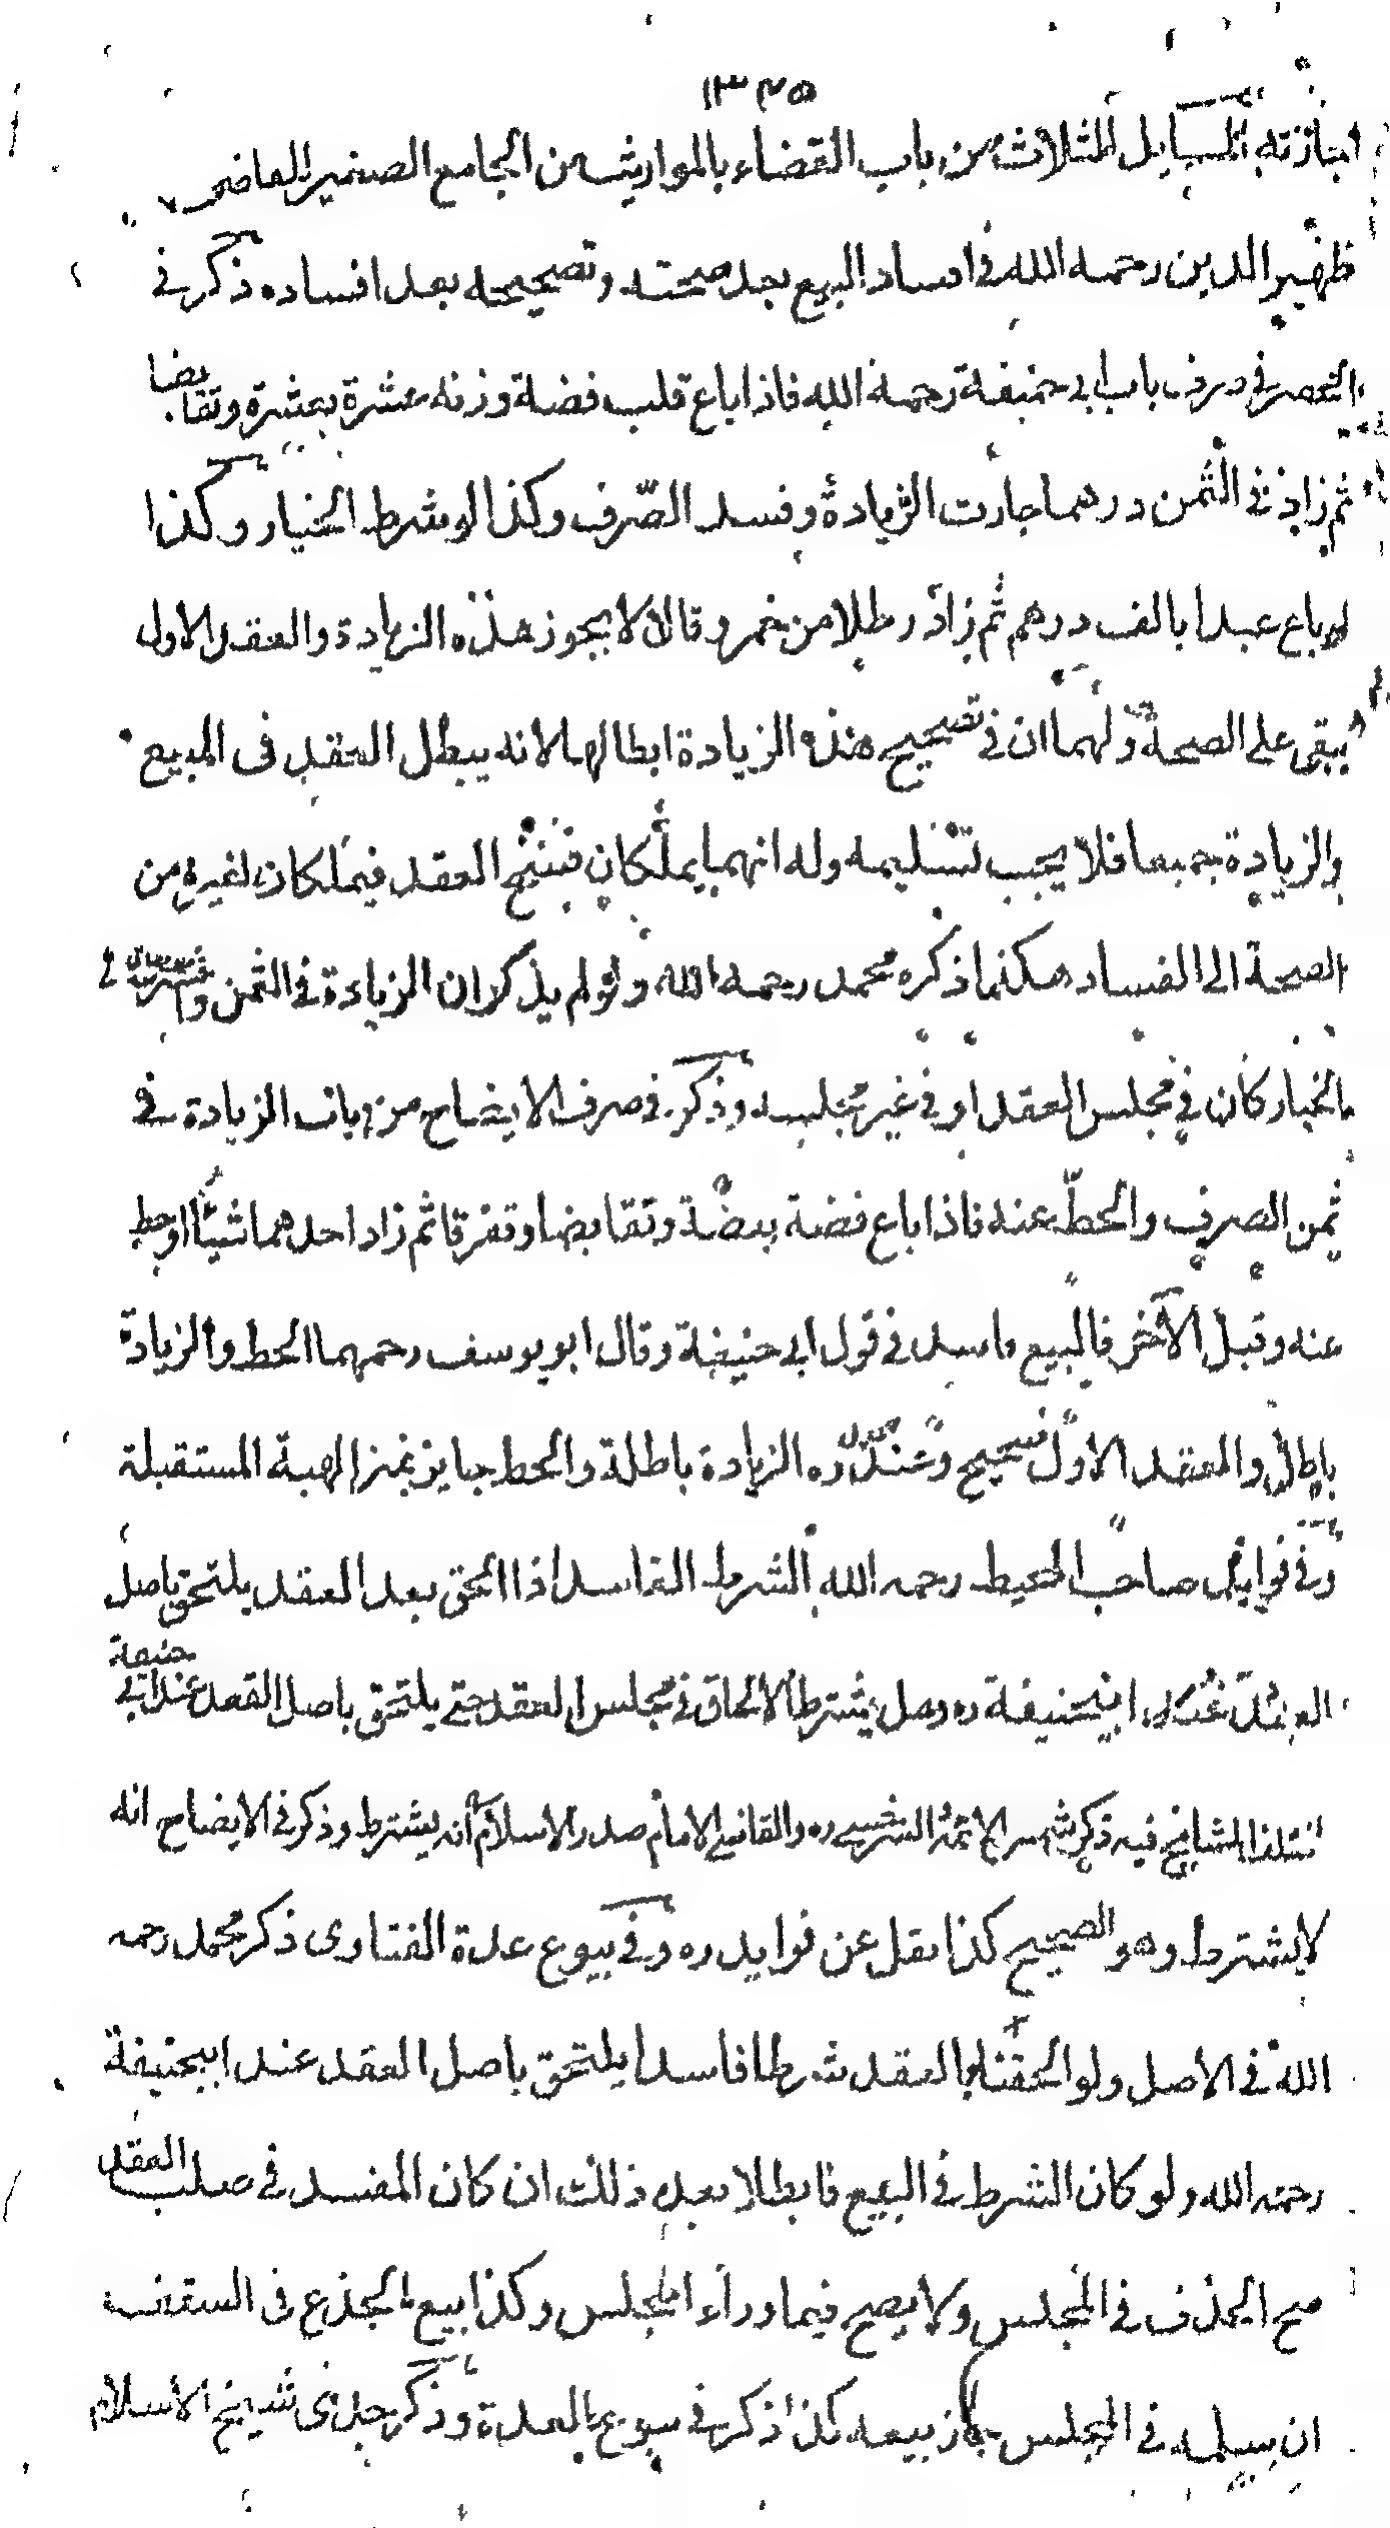 ١٣٢٥
المسايل الثلاث من باب القضاء بالمواريث من الجامع الصغير القاضى
ظهير الدين رحمه الله فى افساد البيع بعد صحته وتصحيحه بعد افساده ذكر فى
باب ابى حنيفة رحمة الله فاذا باع قلب فضة وزنه عشرة بعشرة وتقابضا
ثم زاد فى الثمن درهما جازت الزيادة وفسد الصّرف وكذا لو شرط الخيار وكذا
لو باع عبدا بالف درهم ثم زاد رطلا من خمر وقالا لا يجوز هذه الزيادة والعقد الاول
يبقى على الصحة ولهما ان فى تصحيح هذه الزيادة ابطالها لانه يبطل العقد فى المبيع
والزيادة جميعا فلا يجب تسليمه وله انهما يملكان فسخ العقد فيملكان تغييره من
الصحة الى الفساد هكذا ذكره محمد رحمه الله ولو لم يذكر ان الزيادة فى الثمن
الخيار كان فى مجلس العقد او فى غير مجلسه وذكر فى صرف الايضاح من باب الزيادة فى
ثمن الصرف والحطّ عنه فاذا باع فضة بفضة وتقابضا وتفرقا ثم زاد احدهما شيئا او حط
عنه وقبل الآخر فالبيع فاسد فى قول ابى حنيفة وقال ابو يوسف رحمهما الحط والزيادة
باطل والعقد الاول صحيح وعند ره الزيادة باطلة والحط جايز بمنزلة الهبة المستقبلة
وفى فوايد صاحب المحيط رحمه الله الشرط الفاسد اذا الحق بعد العقد يلتحق باصل
العقد عند ابيحنيفة ره وهل يشترط الالحاق فى مجلس العقد حتى يلتحق باصل العقد عند ابى حنيفة
اختلف المشايخ فيه ذكر شمس الائمة السرخسى ره والقاضى الامام صدر الاسلام انه يشترط وذكر فى الايضاح انه
لا يشترط وهو الصحيح كذا نقل عن فوايد ره وفى بيوع عدة الفتاوى ذكر محمد رحمه
الله فى الاصل ولو الحقنا بالعقد شرطا فاسدا يلتحق باصل العقد عند ابيحنيفة
رحمه الله ولو كان الشرط فى البيع فابطلا بعد ذلك ان كان المفسد فى صلب العقد
صح الحذف فى المجلس ولا يصح فيما وراء المجلس وكذا بيع الجذع فى السقف
ان سلمه فى المجلس جاز بيعه كذا ذكر فى بيوع العدة وذكر جدى شيخ الاسلام